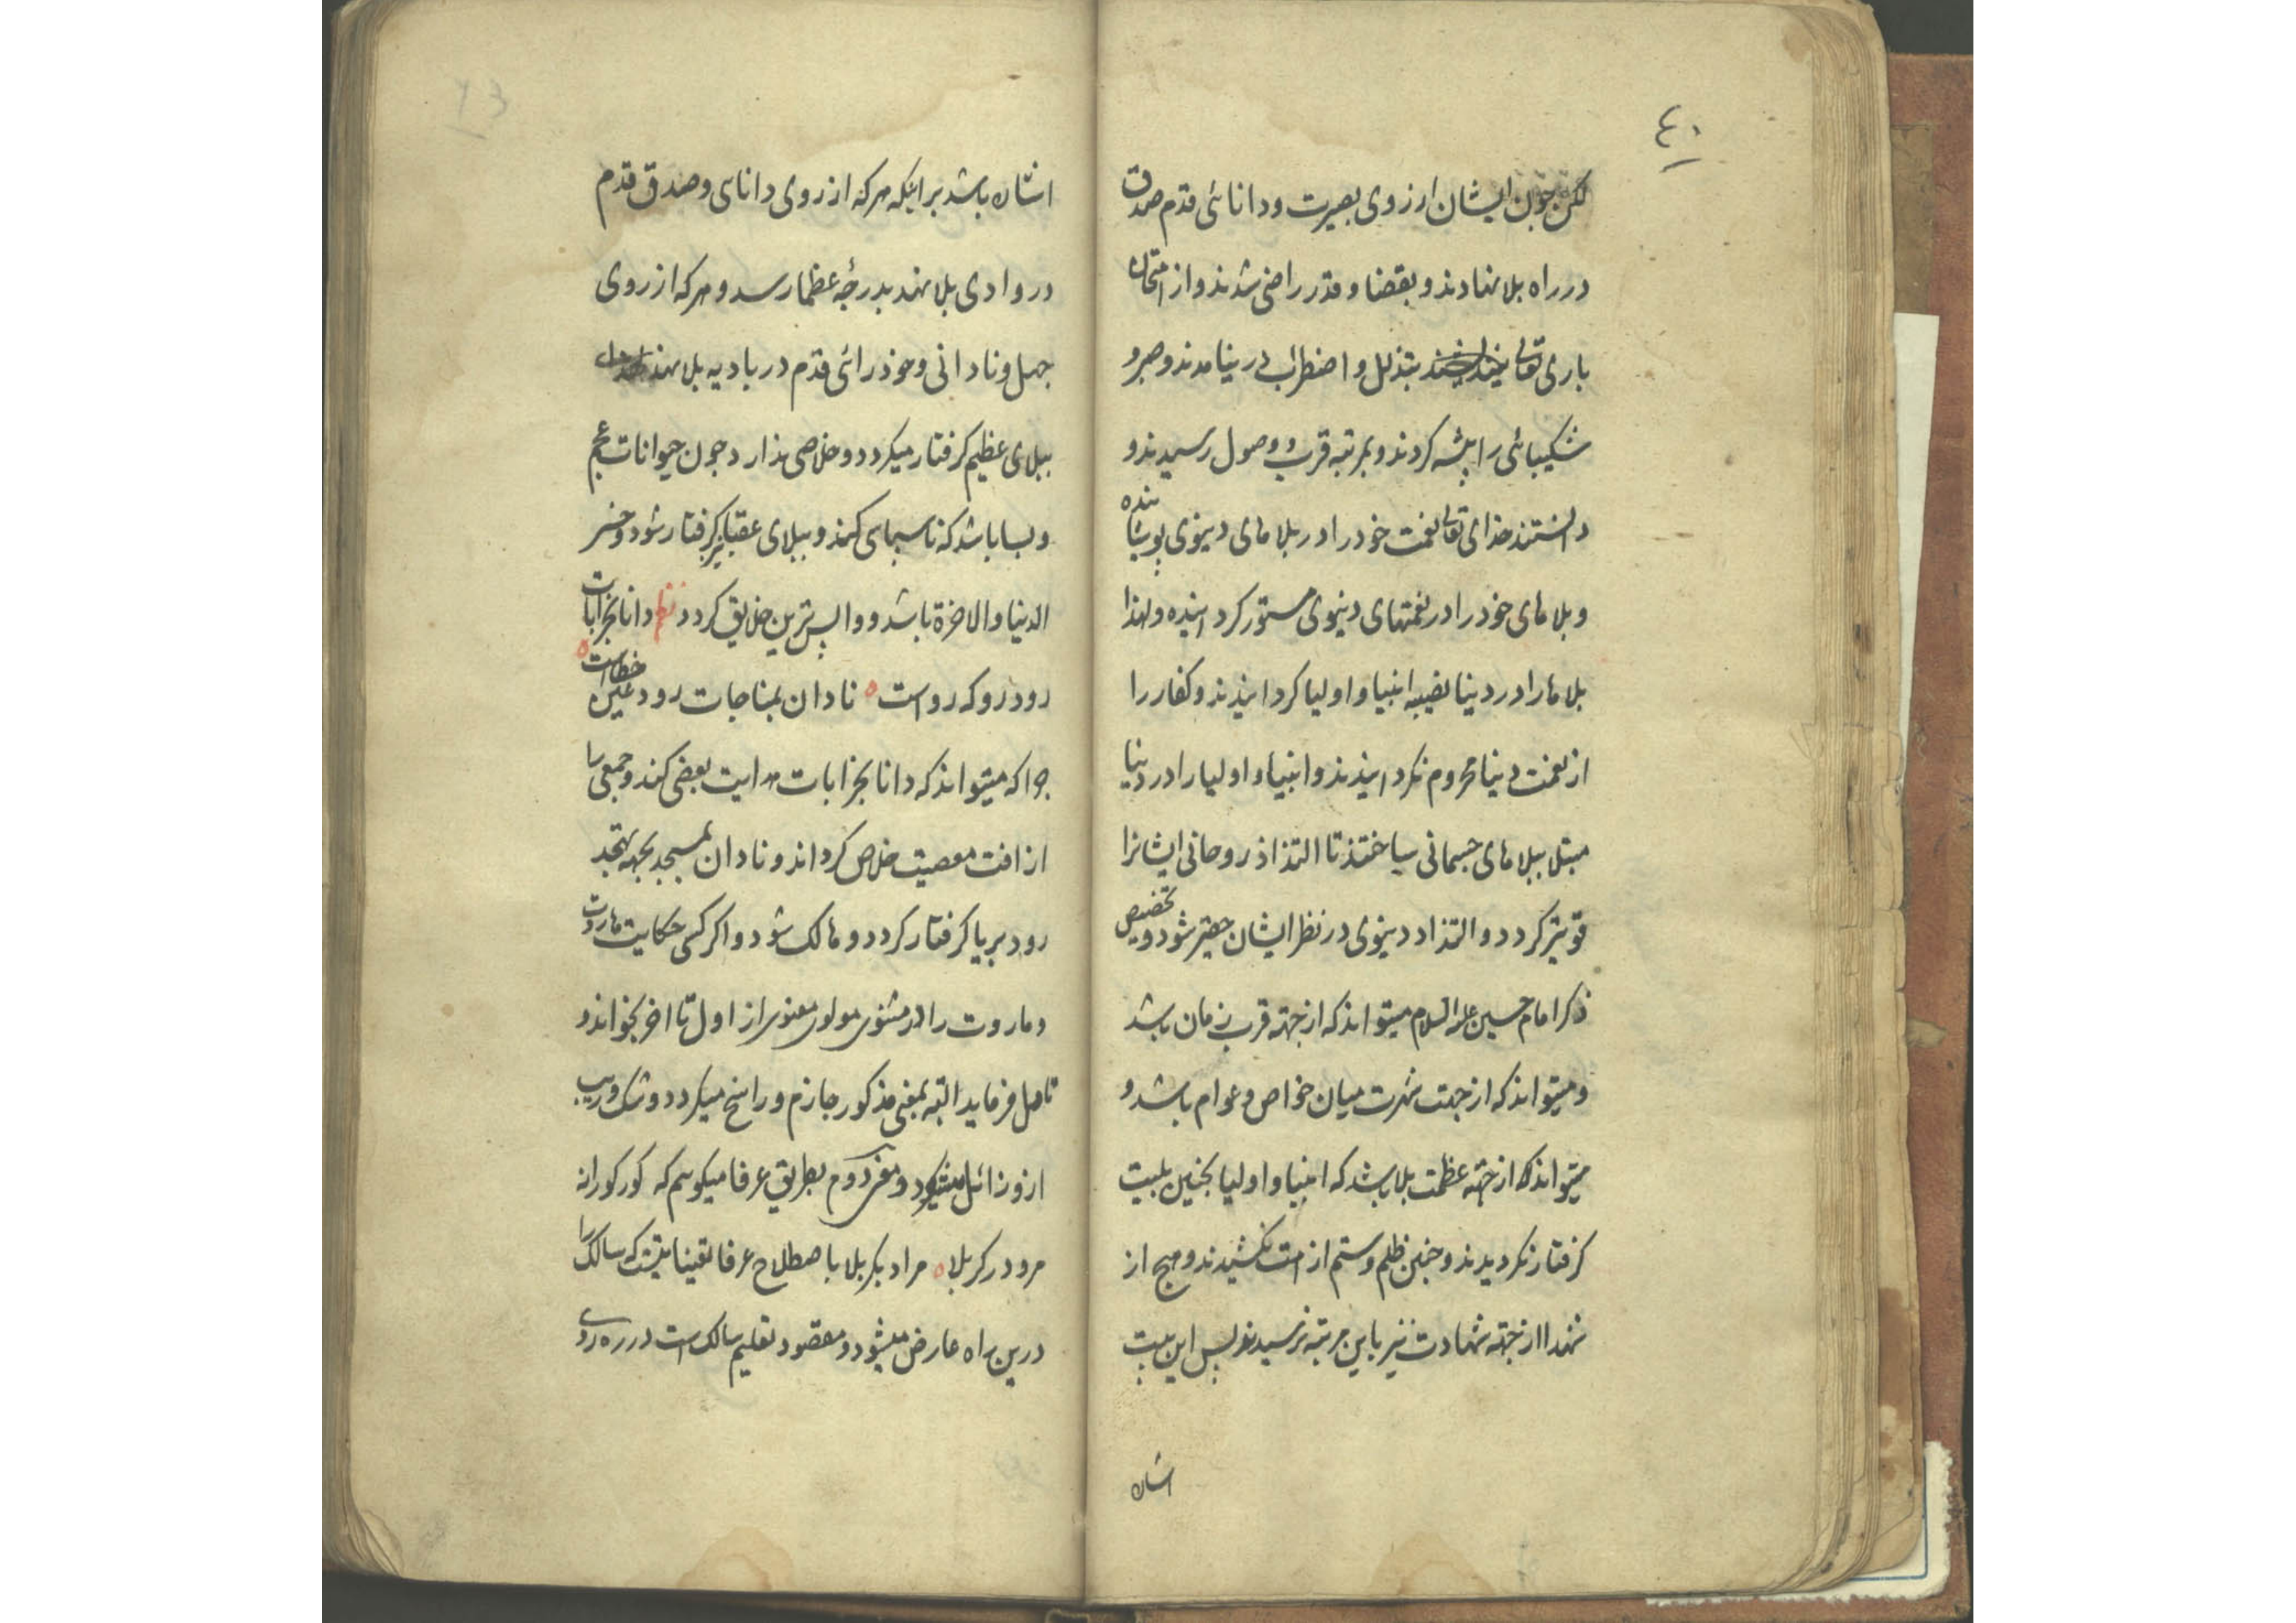 ٤٠
لکن چون ایشان از روی بصیرت و دانائی قدم صدق
در راه بلا نهادند و بقضا و قدر راضی شدند و از امتحان
باری تعالی بتذلل و اضطراب در نیامدند و صبر و
شکیبائی را پیشه کردند و بمرتبه قرب و وصول رسیدند و
دانستند خدای تعالی نعمت خود را در بلاهای دنیوی پوشانیده
و بلاهای خود را در نعمتهای دنیوی مستور کردانیده و لهذا
بلاها را در دنیا نصیبه انبیا و اولیا کردانیدند و کفار را
از نعمت دنیا محروم نکردانیدند و انبیا و اولیا را در دنیا
مبتلا ببلاهای جسمانی ساختند تا التذاذ روحانی ایشانرا
قویتر کردد و التذاد دنیوی در نظر ایشان حقیر شود و تخصیص
ذکر امام حسین علیه السلام میتواند که از جهته قرب زمان باشد
و میتواند که از جهت شهرت میان خواص و عوام باشد و
میتواند که از جهته عظمت بلا باشد که انبیا و اولیا بچنین بلیت
کرفتار نکردیدند و چنین ظلم و ستم از امت نکشیدند و هیچ از
شهدا از جهته شهادت نیز باین مرتبه نرسیدند پس این بیت
اشاره
اشاره باشد بر اینکه هر که از روی دانای و صدق قدم
در وادی بلا نهد بدرجه عظما رسد و هر که از روی
جهل و نادانی و خودرائی قدم در بادیه بلا نهد
ببلای عظیم کرفتار میکردد و خلاصی ندارد چون حیوانات عجم
و بسا باشد که ناسپاسی کند و ببلای عقبا نیز کرفتار شود و خسر
الدنیا والاخرة باشد و واپس ترین خلایق کردد نظم دانا بخرابات
رود رو که رواست ه نادان بمناجات رود عین خطاست ه
چرا که میتواند که دانا بخرابات هدایت بعضی کند و جمعی را
از افت معصیت خلاص کرداند و نادان بمسجد بجهه تهجد
رود بریا کرفتار کردد و هالک شود و اکر کسی حکایت هاروت
و ماروت را در مثنوی مولوی معنوی از اول تا اخر بخواند و
تامل فرماید البته بمعنی مذکور جازم و راسخ میکردد و شک و ریب
ازو زائل میشود و مغز دوم بطریق عرفا میکویم که کور کورانه
مرو در کربلا ه مراد بکربلا باصطلاح عرفا تعینا تیست که سالک را
درین راه عارض میشود و مقصود تعلیم سالک است در ره روی